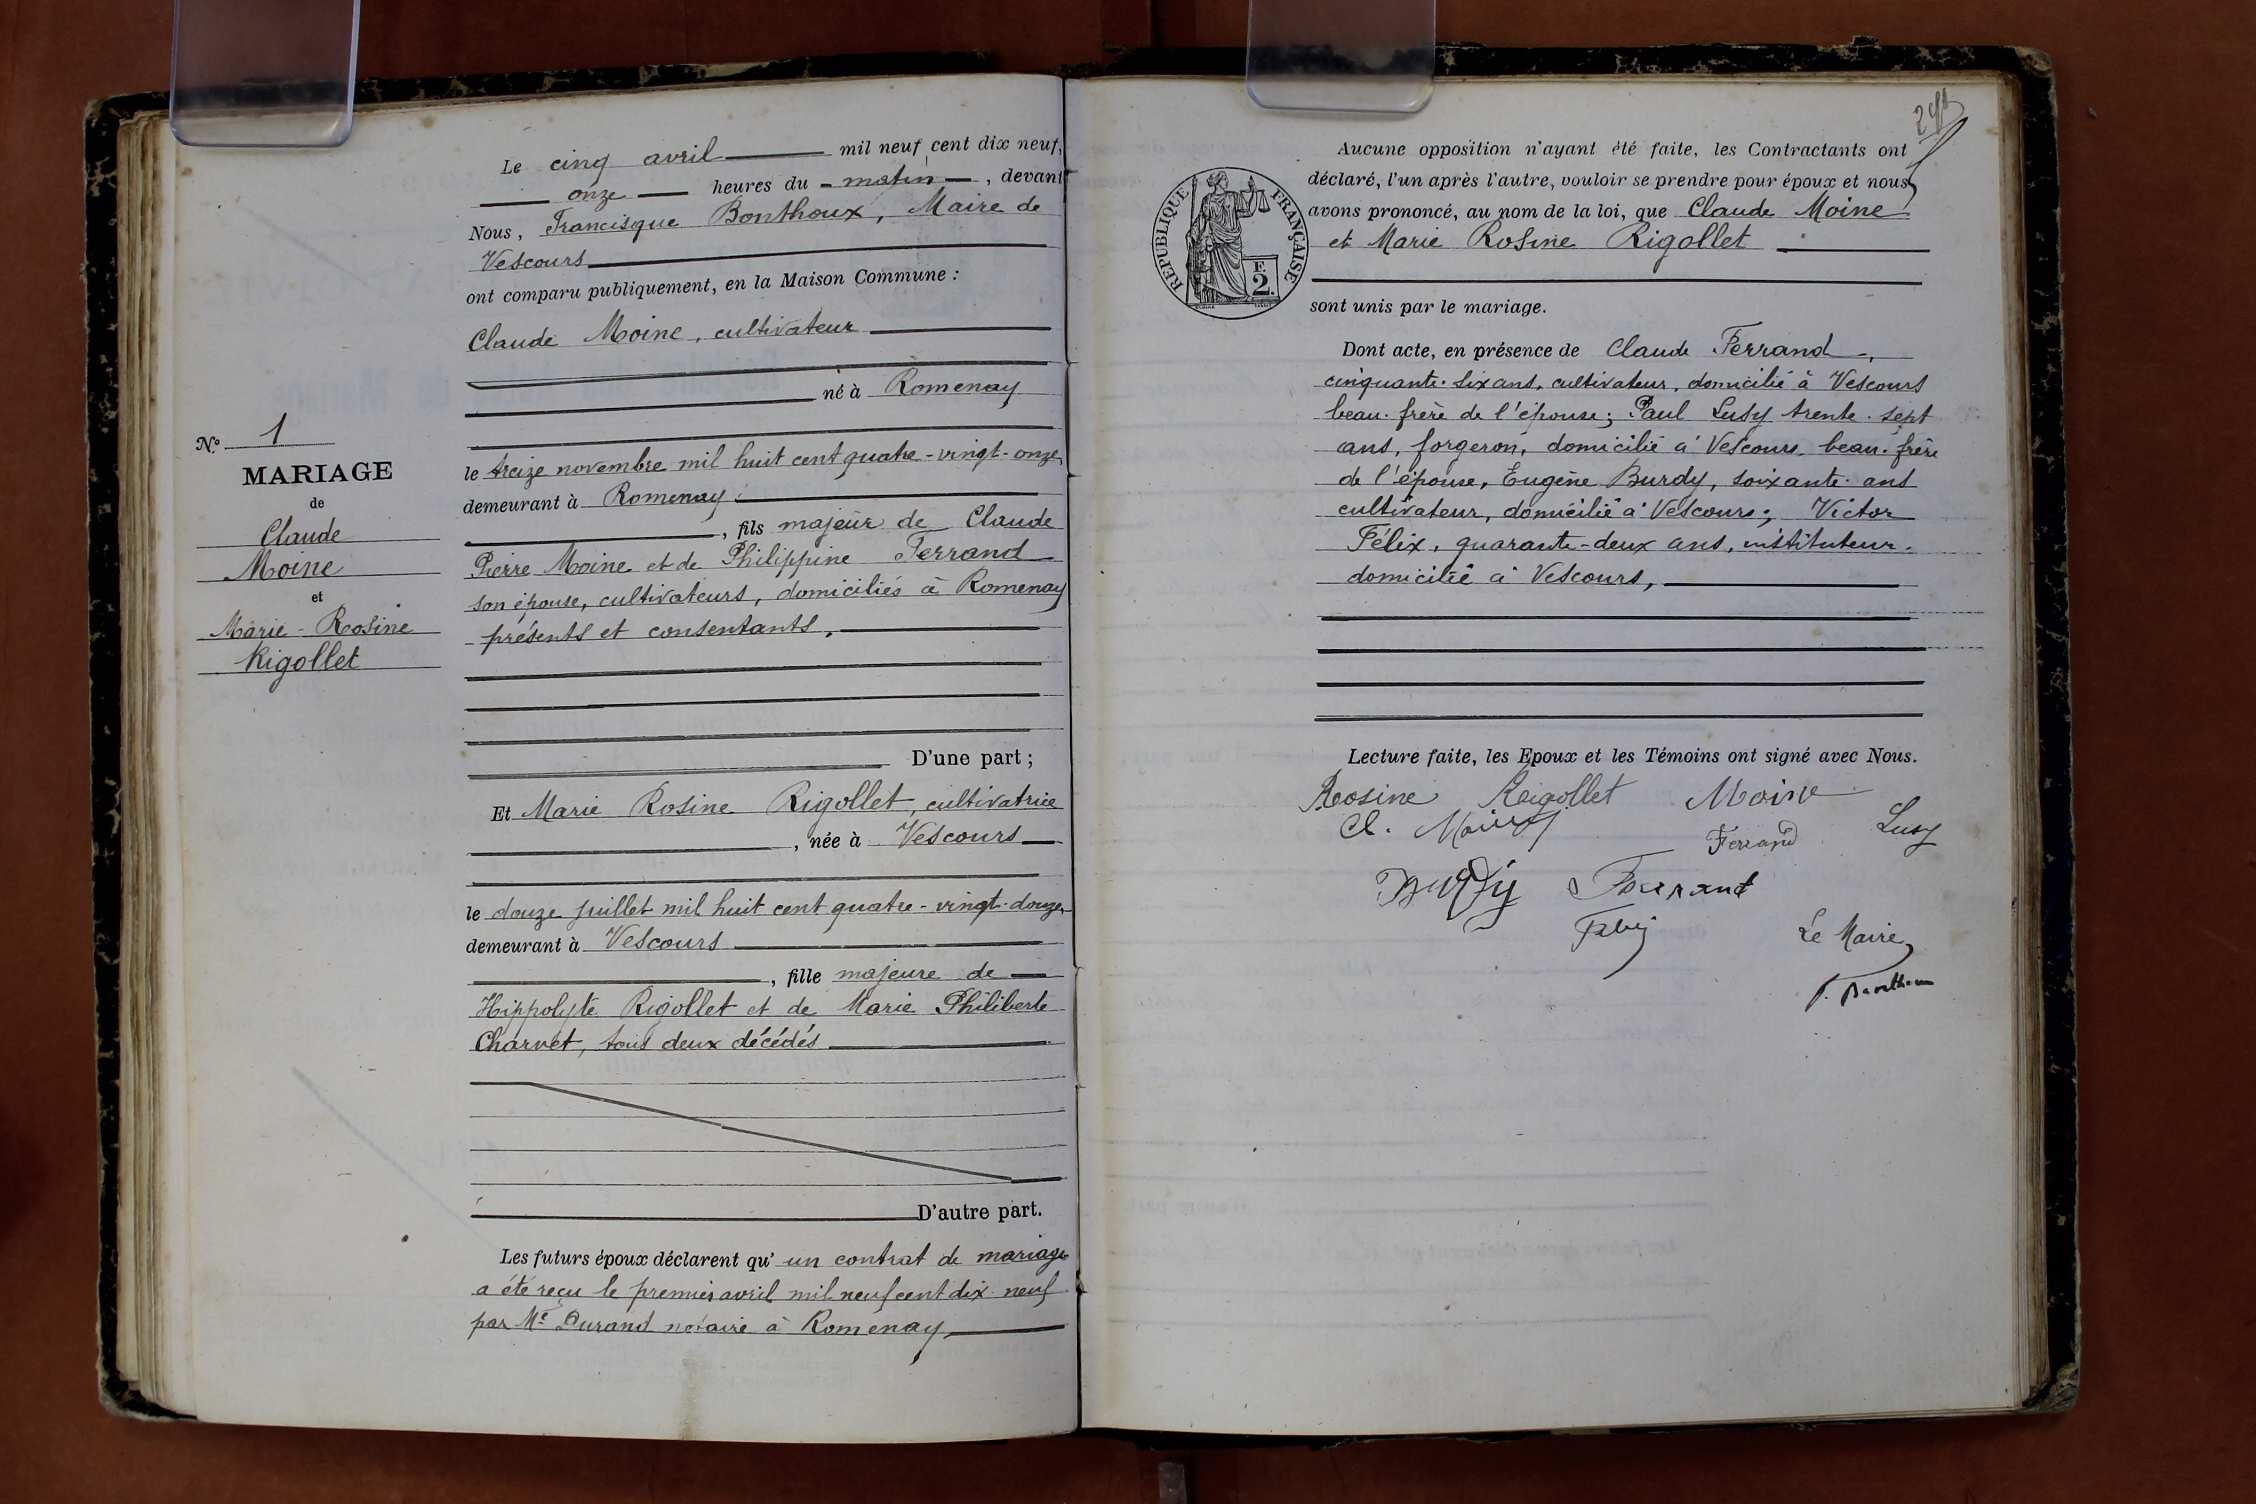 Le cinq avril mil neuf cent dix neuf,
onze heures du matin, devant
Nous, Francisque Bonthoux, Maire de
Vescours
ont comparu publiquement, en la Maison Commune :
Claude Moine, cultivateur
né à Romenay
le treize novembre mil huit cent quatre-vingt-onze,
demeurant à Romenay
, fils majeur de Claude
Pierre Moine et de Philippine Ferrand
son épouse, cultivateurs, domiciliés à Romenay
présents et consentants,
D'une part ;
Et Marie Rosine Rigollet, cultivatrice
, née à Vescours
le douze juillet mil huit cent quatre-vingt-douze,
demeurant à Vescours
, fille majeure de
Hippolyte Rigollet et de Marie Philiberte
Charvet, tous deux décédés
D'autre part.
Les futurs époux déclarent qu'un contrat de mariage
a été reçu le premier avril mil neuf cent dix neuf
par Me Durand notaire à Romenay
No 1
MARIAGE
de
Claude
Moine
et
Marie-Rosine
Rigollet
Aucune opposition n'ayant été faite, les Contractants ont
déclaré, l'un après l'autre, vouloir se prendre pour époux et nous
avons prononcé, au nom de la loi, que Claude Moine
et Marie Rosine Rigollet
sont unis par le mariage.
RÉPUBLIQUE FRANÇAISE
F.
2.
Dont acte, en présence de Claude Ferrand,
cinquante-six ans, cultivateur, domicilié à Vescours
beau-frère de l'épouse; Paul Lusy trente-sept
ans, forgeron, domicilié à Vescours beau-frère
de l'épouse, Eugène Burdy, soixante ans
cultivateur, domicilié à Vescours; Victor
Félix, quarante-deux ans, instituteur,
domicilié à Vescours,
Lecture faite, les Epoux et les Témoins ont signé avec Nous.
Rosine Rigollet Moine
Cl. Moine
Ferrand Lusy
Burdy Ferrand
Le Maire